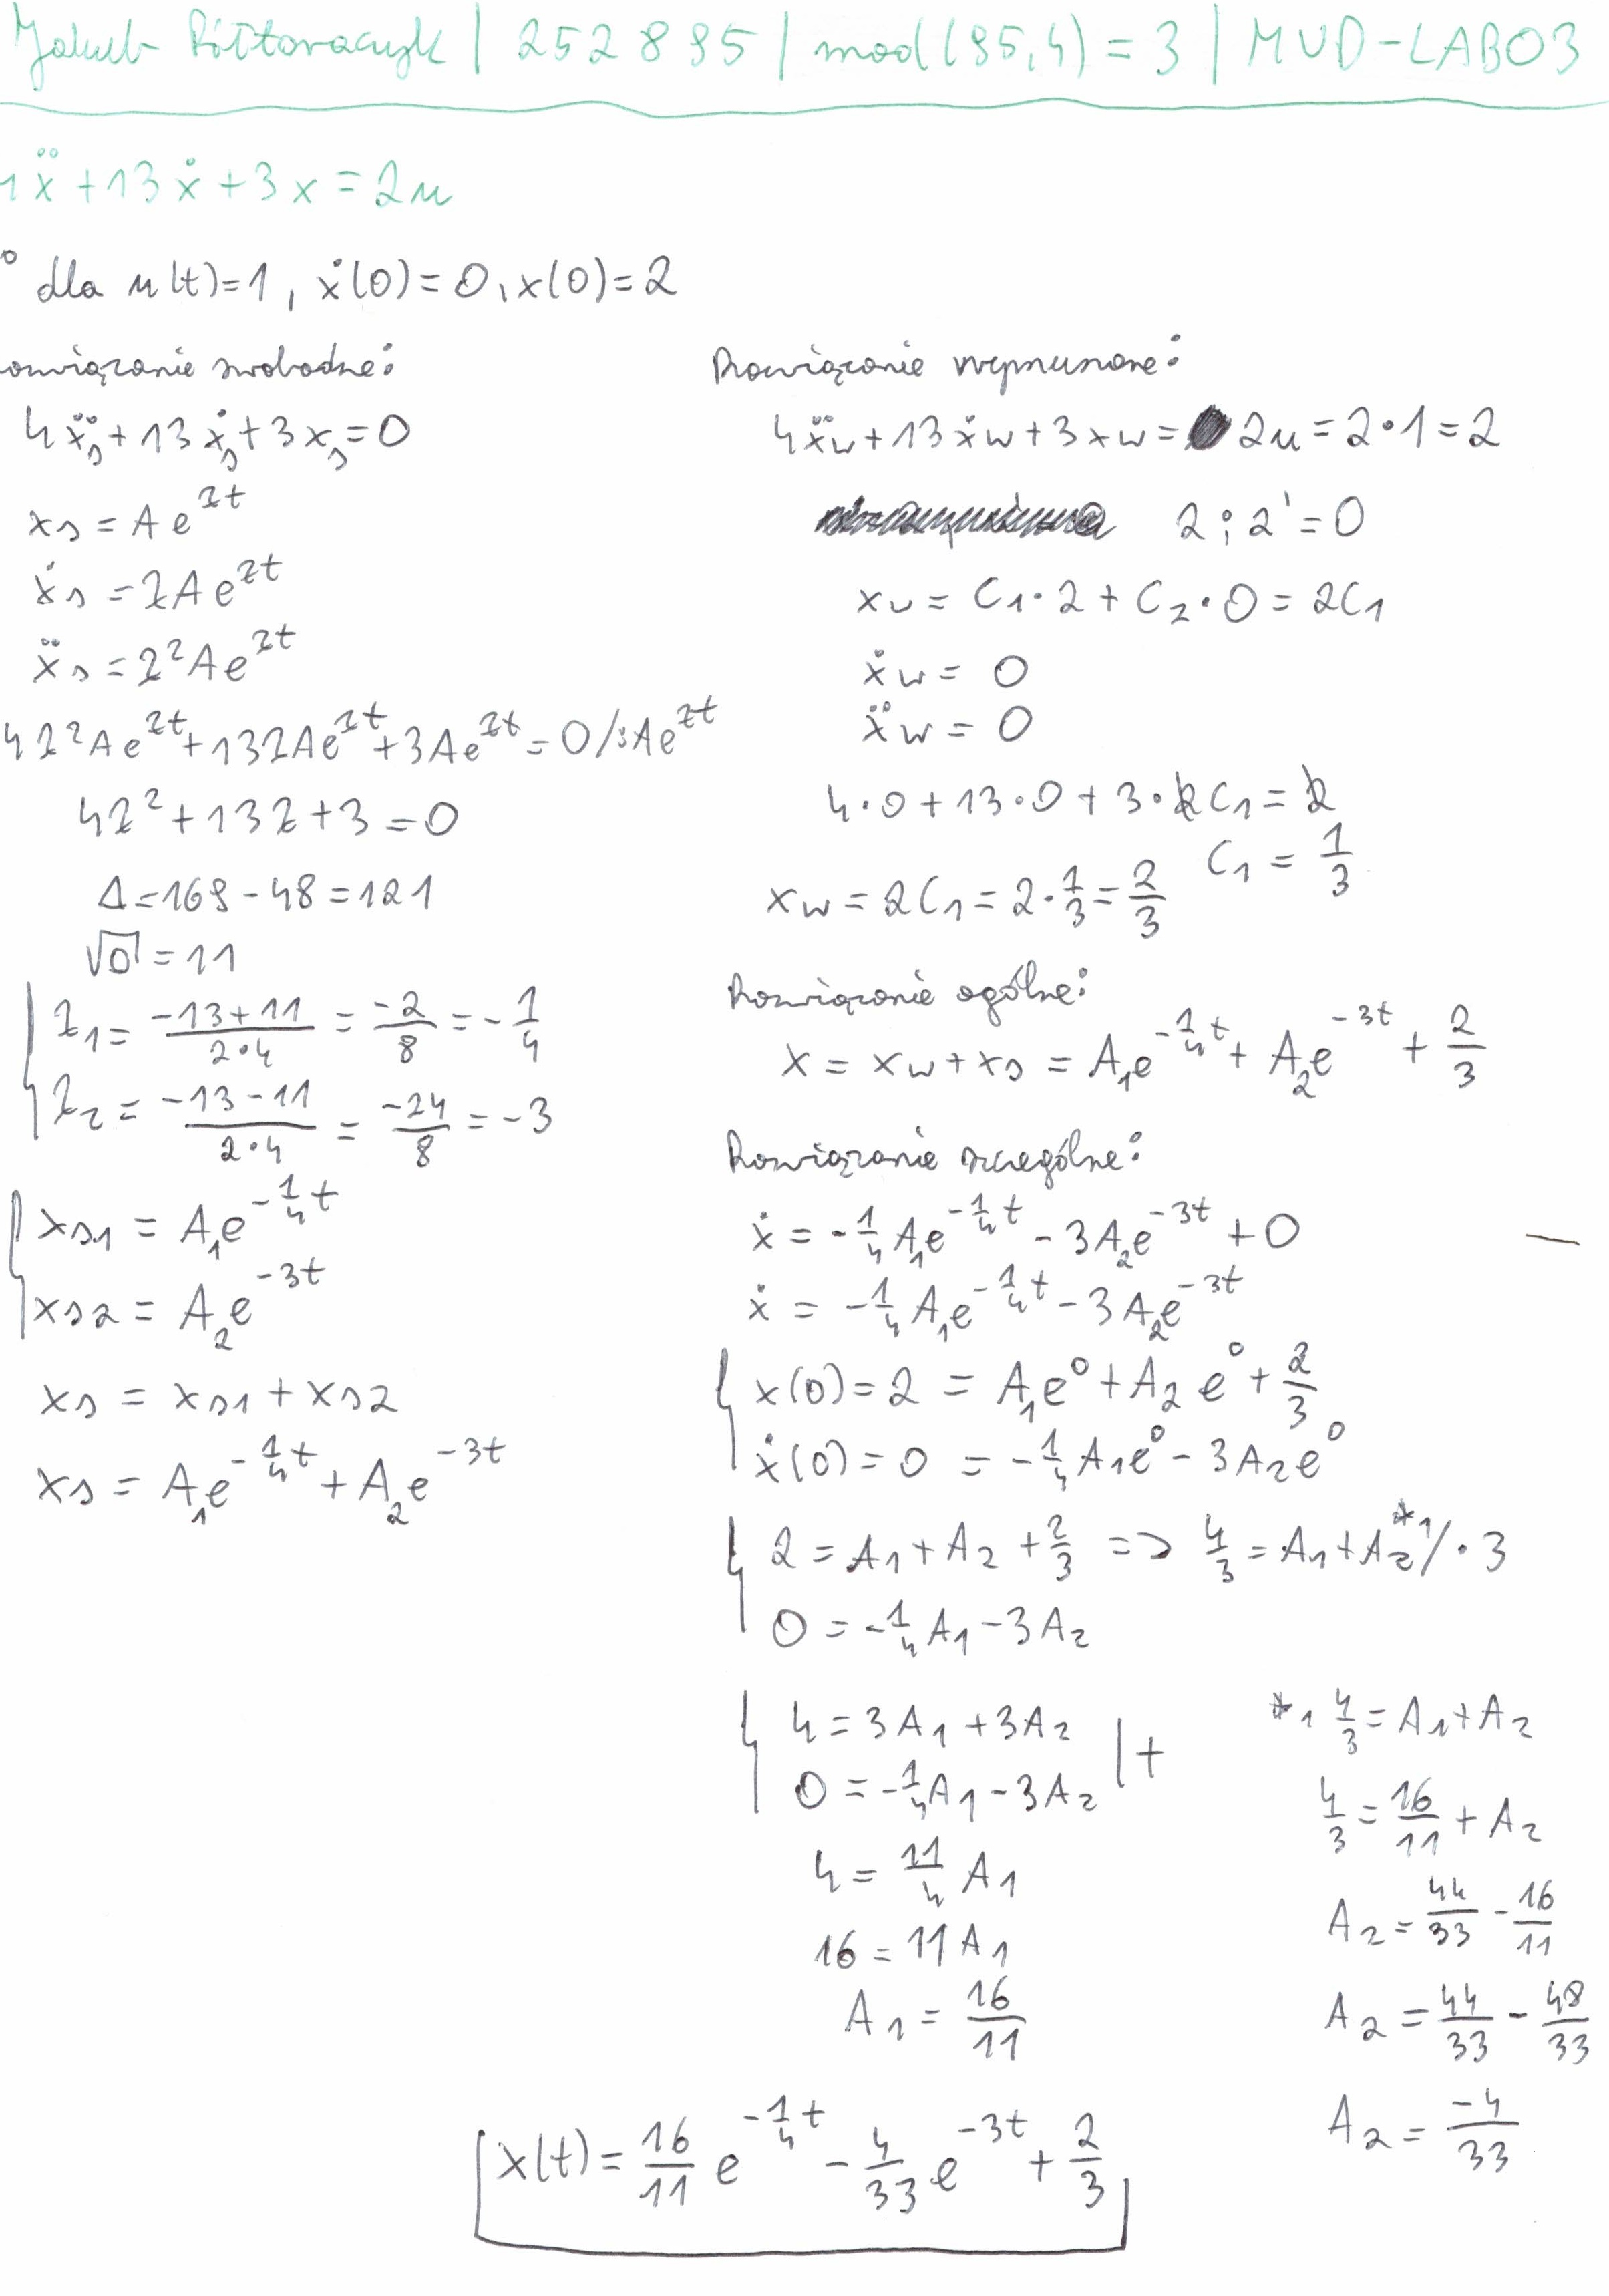 Jakub Półtoraczyk | 252895 | mod(95,4) = 3 | MUD-LAB03
1ẍ + 13ẋ + 3x = 2u
° dla u(t)=1, ẋ(0)=0, x(0)=2
ozwiązanie swobodne:
4ẍs + 13ẋs + 3xs = 0
xs = Ae^zt
ẋs = zAe^zt
ẍs = z²Ae^zt
4z²Ae^zt + 13zAe^zt + 3Ae^zt = 0 /:Ae^zt
4z² + 13z + 3 = 0
Δ = 169 - 48 = 121
√Δ = 11
z₁ = (-13+11)/(2·4) = -2/8 = -1/4
z₂ = (-13-11)/(2·4) = -24/8 = -3
xs1 = A₁e^(-1/4 t)
xs2 = A₂e^(-3t)
xs = xs1 + xs2
xs = A₁e^(-1/4 t) + A₂e^(-3t)
Rozwiązanie wymuszone:
4ẍw + 13ẋw + 3xw = 2u = 2·1 = 2
2 ; 2' = 0
xw = C₁·2 + C₂·0 = 2C₁
ẋw = 0
ẍw = 0
4·0 + 13·0 + 3·2C₁ = 2
C₁ = 1/3
xw = 2C₁ = 2·1/3 = 2/3
Rozwiązanie ogólne:
x = xw + xs = A₁e^(-1/4 t) + A₂e^(-3t) + 2/3
Rozwiązanie szczególne:
ẋ = -1/4 A₁e^(-1/4 t) - 3A₂e^(-3t) + 0
ẋ = -1/4 A₁e^(-1/4 t) - 3A₂e^(-3t)
x(0) = 2 = A₁e⁰ + A₂e⁰ + 2/3
ẋ(0) = 0 = -1/4 A₁e⁰ - 3A₂e⁰
2 = A₁ + A₂ + 2/3 => 4/3 = A₁ + A₂ *1 /·3
0 = -1/4 A₁ - 3A₂
4 = 3A₁ + 3A₂
0 = -1/4 A₁ - 3A₂ |+
4 = 11/4 A₁
16 = 11A₁
A₁ = 16/11
*1 4/3 = A₁ + A₂
4/3 = 16/11 + A₂
A₂ = 44/33 - 16/11
A₂ = 44/33 - 48/33
A₂ = -4/33
x(t) = 16/11 e^(-1/4 t) - 4/33 e^(-3t) + 2/3